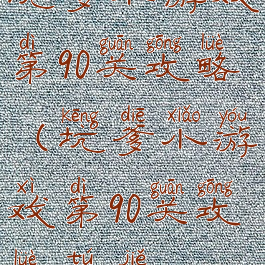 dì guān gōng lüè
第90关攻略
kēng diē xiǎo yóu
（坑爹小游
xì dì guān gōng
戏第90关攻
lüè tú jiě